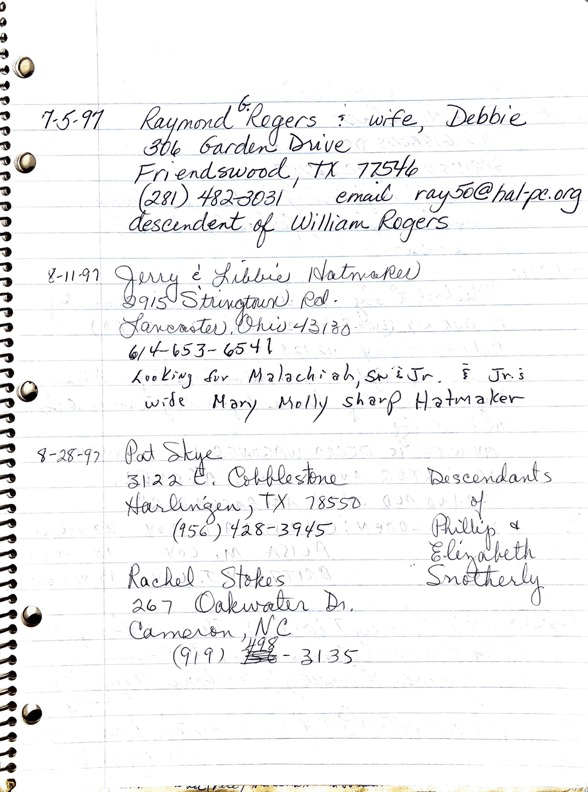 7-5-97 Raymond G. Rogers & wife, Debbie
306 Garden Drive
Friendswood, TX 77546
(281) 482-3031 email ray50@hal-pc.org
descendent of William Rogers
8-11-97 Jerry & Libbie Hatmaker
2915 Stringtown Rd.
Lancaster, Ohio 43130
614-653-6541
Looking for Malachiah, Sr & Jr. & Jr.s
wide Mary Molly Sharp Hatmaker
8-28-97 Pat Skye
3122 E. Cobblestone
Harlingen, TX 78550
(956) 428-3945
Descendants
of
Phillip &
Elizabeth
Snotherly
Rachel Stokes
267 Oakwater Dr.
Cameron, NC
(919) 498-3135